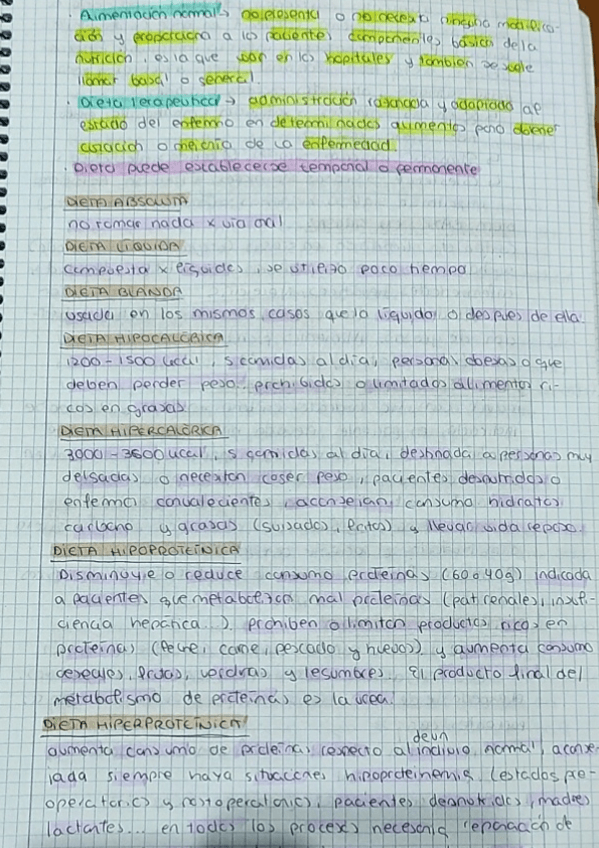 · Alimentación normal → no presenta o no necesita ninguna modifica-
ción y proporciona a los pacientes componentes básicos de la
nutrición, es la que dan en los hospitales y también se suele
llamar basal o general
· Dieta terapeutica → administración razonada y adaptada al
estado del enfermo en determinados alimentos para obener
curación o mejoria de la enfermedad.
· Dieta puede establecerse temporal o permanente
DIETA ABSOLUTA
no tomar nada x via oral
DIETA LIQUIDA
compuesta x liquidos, se utiliza poco tiempo
DIETA BLANDA
usada en los mismos casos que la liquida o despues de ella.
DIETA HIPOCALÓRICA
1200 - 1500 kcal, 5 comidas al dia, personas obesas o que
deben perder peso. prohibidos o limitados alimentos ri-
cos en grasas
DIETA HIPERCALÓRICA
3000 - 3600 kcal, 5 comidas al dia, destinada a personas muy
delgadas o necesitan coger peso, pacientes desnutridos o
enfermos convalecientes, aconsejan consumo hidratos
carbono y grasas (guisados, fritos) y llevar vida reposo
DIETA HIPOPROTEÍNICA
Disminuye o reduce consumo proteinas (60 o 40g) indicada
a pacientes que metabolizan mal proteinas (pat renales, insufi-
ciencia hepatica...). prohiben o limitan productos ricos en
proteinas (leche, carne, pescado y huevos) y aumenta consumo
cereales, frutas, verduras y legumbres. El producto final del
metabolismo de proteinas es la urea.
DIETA HIPERPROTEÍNICA
aumenta consumo de proteinas respecto al de un indiviuo normal, aconse-
jada siempre haya situaciones hipoproteinemia (estados pre-
operatorios y postoperatorios, pacientes desnutridos, madres
lactantes... en todos los procesos necesaria reparación de